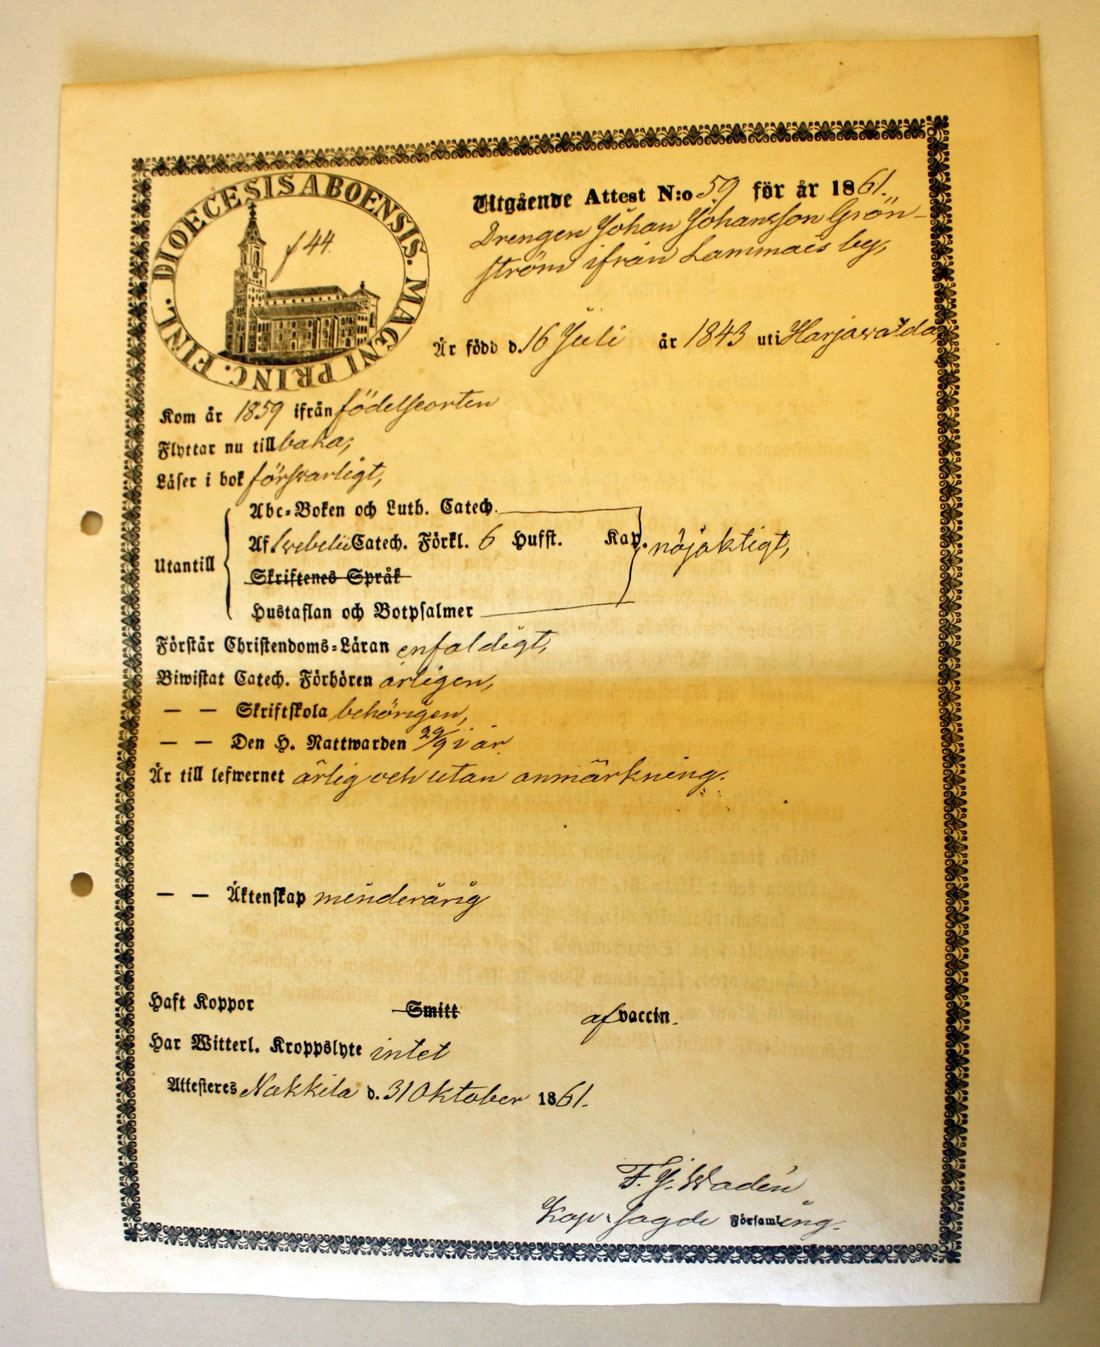 DIOECESIS ABOENSIS. MAGNI PRINC. FINL.
f 44.
Utgående Attest N:o 59 för år 1861.
Drengen Johan Johansson Grön-
ström ifrån Lammais by,
Är född d. 16 Juli år 1843 uti Harjavalda,
Kom år 1859 ifrån födelseorten
Flyttar nu tillbaka,
Läser i bok försvarligt,
Abc-Boken och Luth. Catech.
Af Svebelii Catech. Förkl. 6 Hufst. Kap. nöjaktigt,
Utantill
Skriftenes Språk
Hustaflan och Botpsalmer
Förstår Christendoms-Läran enfaldigt,
Biwistat Catech. Förhören årligen,
— — Skriftskola behörigen,
— — Den H. Nattwarden 29/9 i år.
Är till lefwernet ärlig och utan anmärkning.
— — Äktenskap minderårig
Haft Koppor Smitt af vaccin.
Har Witterl. Kroppslyte intet
Attesteres Nakkila d. 31 Oktober 1861.
F. J. Wadén
Kap. i sagde Församling.